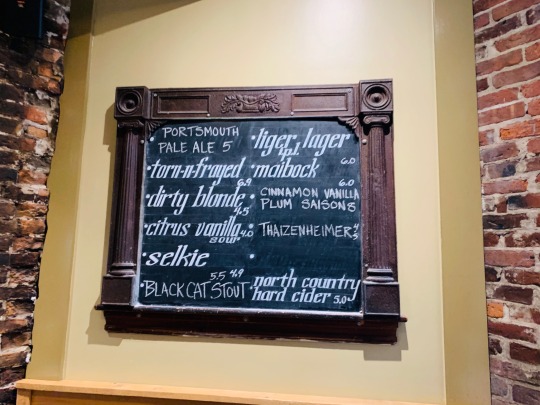 PORTSMOUTH
PALE ALE 5
torn-n-frayed
6.9
dirty blonde
4.5
citrus vanilla
sour
selkie
5.5 4.9
BLACK CAT STOUT
tiger lager
maibock
6.0
6.0
CINNAMON VANILLA
PLUM SAISON
THAIZENHEIMER
north country
hard cider 5.0